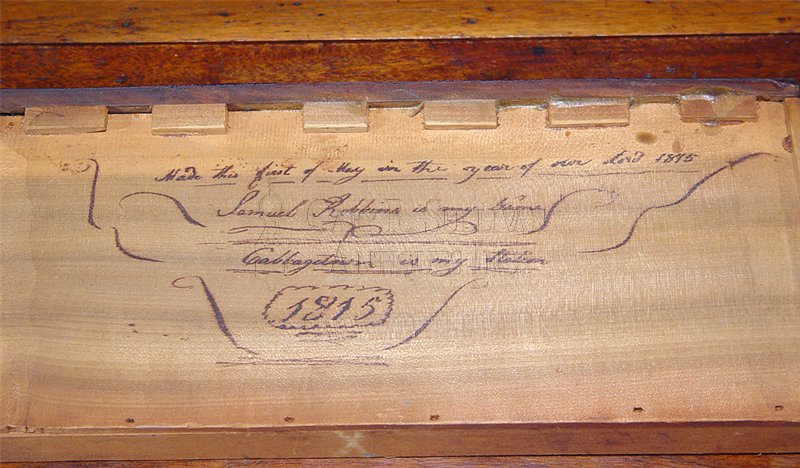 Made this first of May in the year of our Lord 1815
Samuel Robbins is my Name
Cabbagetown is my Station
1815